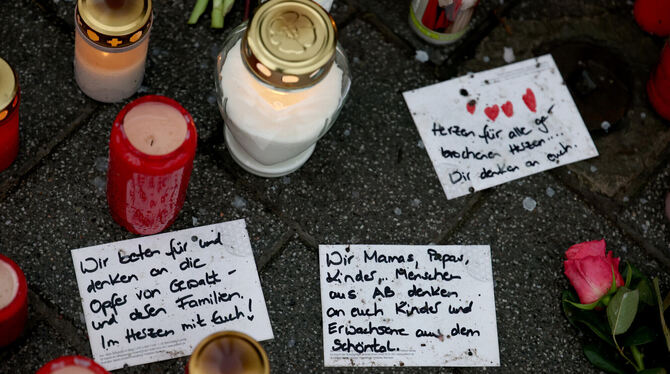 Herzen für alle ge-
brochenen Herzen...
Wir denken an euch.
Wir beten für und
denken an die
Opfer von Gewalt -
und deren Familien.
Im Herzen mit Euch!
Wir Mamas, Papas,
Kinder, Menschen
aus AB denken
an euch Kinder und
Erwachsene aus dem
Schöntal.